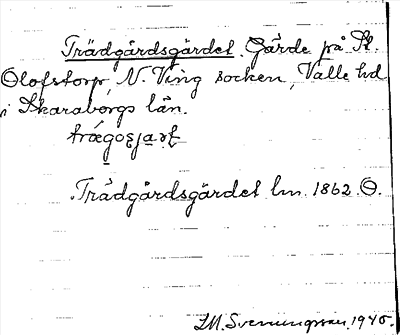 Trädgårdsgärdet. Gärde på St.
Olofstorp, N. Ving socken, Valle hd
i Skaraborgs län.
Trädgårdsgärdet lm. 1862 O.
I.M. Svenungsson. 1945.